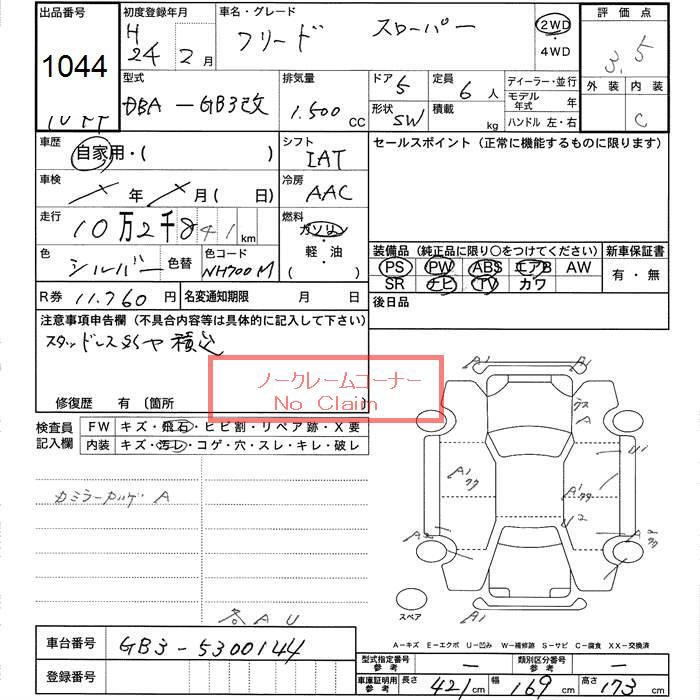 出品番号
1044
初度登録年月
H
24 2月
車名・グレード
フリード スローパー
2WD
・
4WD
評価点
3.5
型式
DBA-GB3改
排気量
1.500cc
ドア 5
定員 6人
ディーラー・並行
モデル年式 年
形状 SW
積載 kg
ハンドル 左・右
外装 内装
C
車歴
自家用・( )
シフト
IAT
車検
年 月( 日)
冷房
AAC
走行
10万2千841km
燃料
ガソリン
・
軽・油
( )
色
シルバー
色替
色コード
NH700M
セールスポイント (正常に機能するものに限ります)
装備品 (純正品に限り○をつけてください)
PS PW ABS エアB AW
SR ナビ TV カワ
新車保証書
有・無
後日品
R券 11,760円
名変通知期限 月 日
注意事項申告欄 (不具合内容等は具体的に記入して下さい)
スタッドレスタイヤ 積込
修復歴 有 〔箇所
ノークレームコーナー
No Claim
検査員記入欄
FW キズ・飛石・ヒビ割・リペア跡・X要
内装 キズ・汚レ・コゲ・穴・スレ・キレ・破レ
A1 A1
A1
A1
U1
U2
A2
スペア
A1
各AU
A-キズ E-エクボ U-凹み W-補修跡 S-サビ C-腐食 XX-交換済
車台番号 GB3-5300144
登録番号
型式指定番号 参考 —
類別区分番号 参考 —
車庫証明用 参考 長さ 421cm 幅 169cm 高さ 173cm